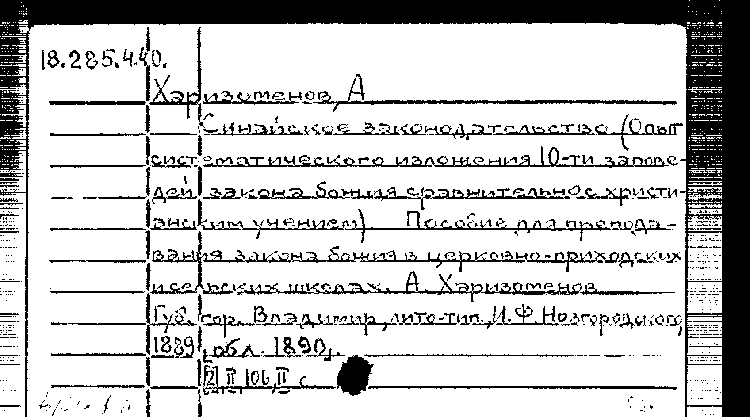 18.285.4.40.
Харизоменов, А
Синайское законодательство (Опыт
систематического изложения 10-ти запове-
дей закона божия сравнительно с христи-
анским учением) Пособие для препода-
вания закона божия в церковно-приходских
и сельских школах. А. Харизоменов
Губ. гор. Владимир, лито-тип. И.Ф. Новгородского,
1889, обл. 1890,.
[2] II 106, II с